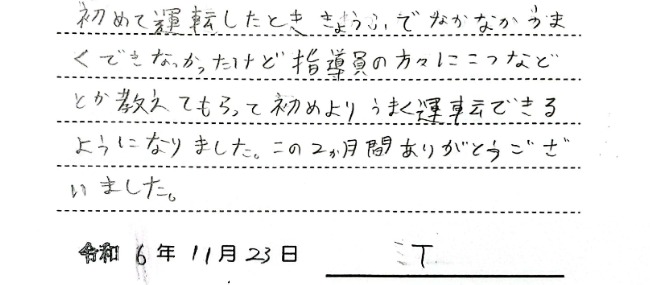 初めて運転したとき きょうふで なかなかうま
くできなかったけど指導員の方々にこつなど
とか教えてもらって初めよりうまく運転できる
ようになりました。この2か月間ありがとうござ
いました。
令和 6年 11月 23日